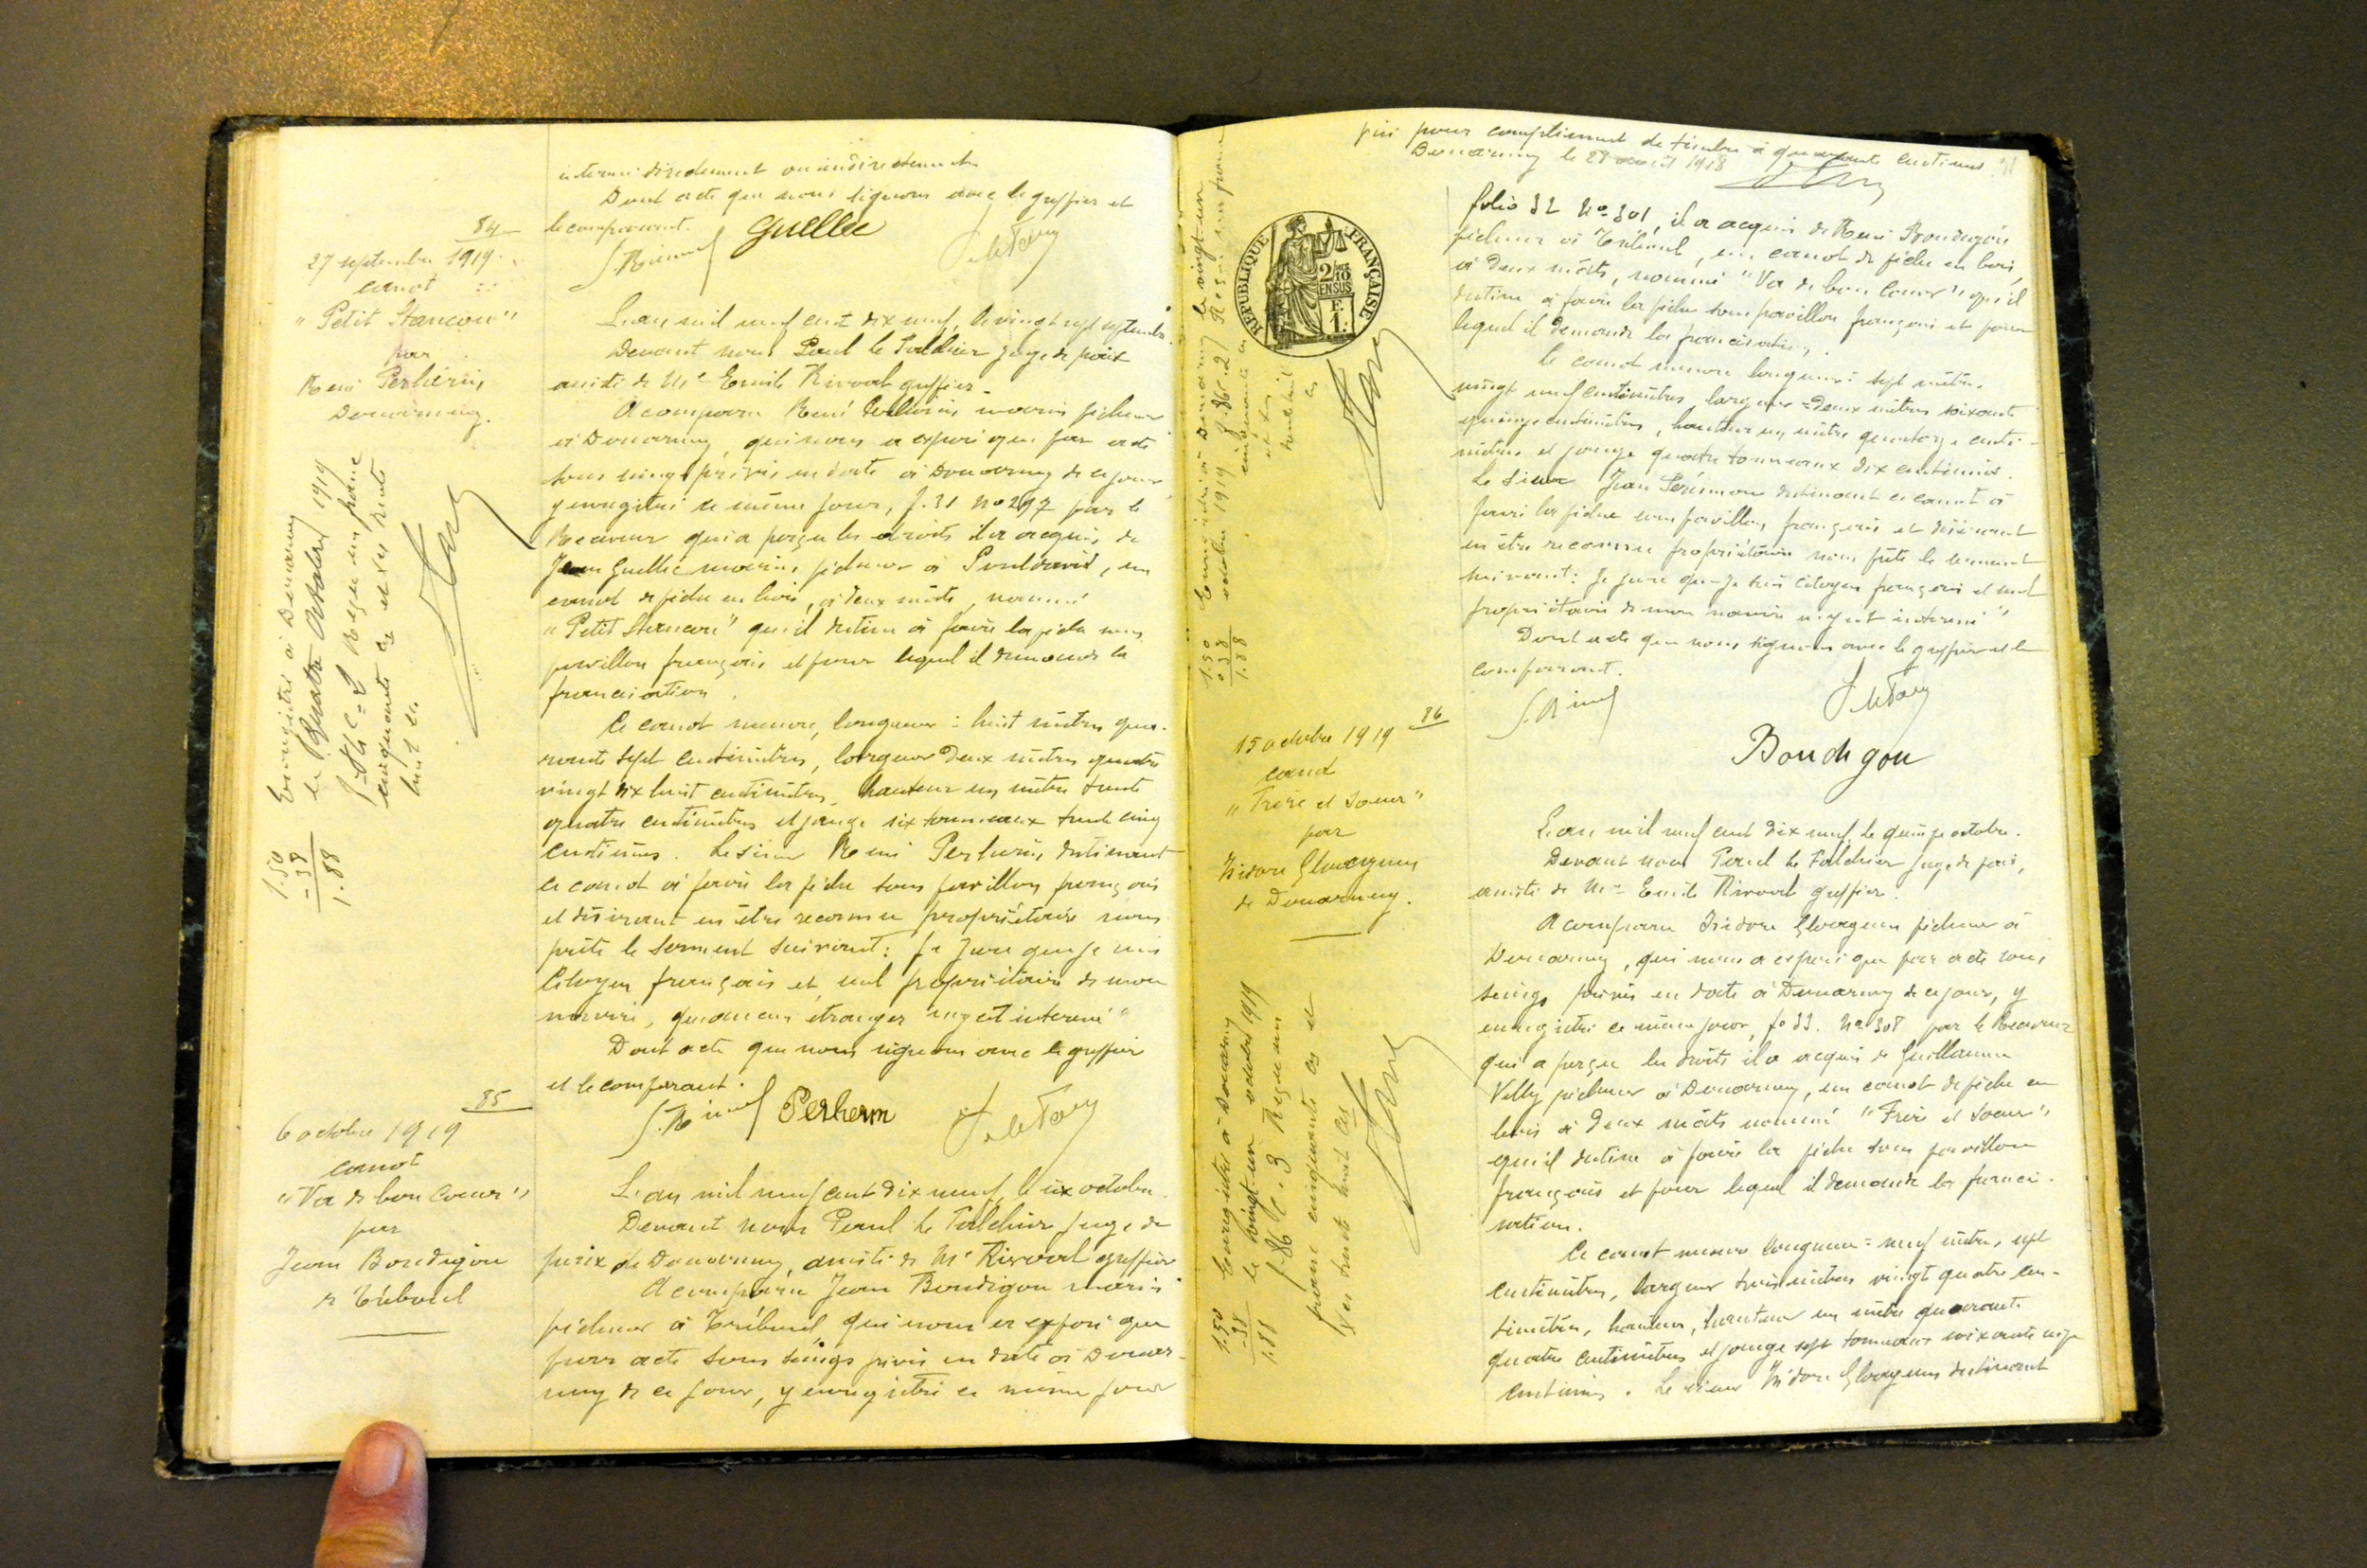 intervenir directement ou indirectement.
Dont acte que nous signons avec le greffier et
le comparant.
Guellec
84
27 septembre 1919
canot
"Petit Stancou"
par
René Perherin,
Douarnenez.
Enregistré à Douarnenez
le quatre Octobre 1919
f. 86 c. 2 Reçu un franc
cinquante ces et xes trente
huit ces
1.50
-38
1.88
L'an mil neuf cent dix neuf, le vingt sept septembre.
Devant nous Paul le Talchier juge de paix
assisté de Me Emile Rivoal greffier.
A comparu René Perherin, marin pêcheur
à Douarnenez, qui nous a exposé que par acte
sous seings privés en date à Douarnenez de ce jour
y enregistré ce même jour, f. 31 no 297 par le
Receveur qui a perçu les droits il a acquis de
Jean Guellec marin, pêcheur à Pouldavid, un
canot de pêche en bois, à deux mâts, nommé
"Petit Stancou" qu'il destine à faire la pêche sous
pavillon français et pour lequel il demande la
francisation.
Ce canot mesure, longueur : huit mètres qua-
rante sept centimètres, largeur deux mètres quatre
vingt dix huit centimètres, hauteur un mètre trente
quatre centimètres et jauge six tonneaux trente cinq
centièmes. Le sieur René Perherin, destinant
ce canot à faire la pêche sous pavillon français
et désirant en être reconnu propriétaire nous
prête le serment suivant : Je jure que je suis
Citoyen français et seul propriétaire de mon
navire, qu'aucun étranger n'y est intéressé"
Dont acte que nous signons avec le greffier
et le comparant.
Perherin
85
6 octobre 1919
canot
"Va de bon Coeur"
par
Jean Boudigou
de Tréboul
L'an mil neuf cent dix neuf, le six octobre.
Devant nous Paul Le Talchier juge de
paix de Douarnenez, assisté de Me Rivoal greffier
A comparu Jean Boudigou marin
pêcheur à Tréboul, qui nous a exposé que
par acte sous seings privés en date à Douar-
nenez de ce jour, y enregistré ce même jour
pour complément de timbre à quarante centimes
Douarnenez le 28 août 1918
RÉPUBLIQUE FRANÇAISE
2/10
EN SUS
F.
1.
Enregistré à Douarnenez le vingt-un
octobre 1919 f. 86 c. 2 Reçu un franc
cinquante ces
et xes
trente huit
ces
1.50
0.38
1.88
folio 32 No 301, il a acquis de René Boudigou
pêcheur à Tréboul, un canot de pêche en bois,
à deux mâts, nommé "Va de bon Coeur" qu'il
destine à faire la pêche sous pavillon français et pour
lequel il demande la francisation.
Ce canot mesure longueur : sept mètres
vingt neuf centimètres, largeur = deux mètres soixante
quinze centimètres, hauteur un mètre quatorze centi-
mètres et jauge quatre tonneaux dix centièmes.
Le Sieur Jean destinant ce canot à
faire la pêche sous pavillon français et désirant
en être reconnu propriétaire nous prête le serment
suivant : Je jure que je suis citoyen français et seul
propriétaire de mon navire n'y est intéressé"
Dont acte que nous signons avec le greffier et le
comparant.
Boudigou
86
15 octobre 1919
canot
"Frère et Soeur"
par
Isidore Gloaguen
de Douarnenez.
Enregistré à Douarnenez
le vingt-un octobre 1919
f. 86 c. 3 Reçu un
franc cinquante ces et
xes trente huit ces
1.50
-38
1.88
L'an mil neuf cent dix neuf, le quinze octobre.
Devant nous Paul Le Talchier juge de paix,
assisté de Me Emile Rivoal greffier.
A comparu Isidore Gloaguen pêcheur à
Douarnenez, qui nous a exposé que par acte sous
seings privés en date à Douarnenez de ce jour, y
enregistré ce même jour, fo 33. No 308 par le Receveur
qui a perçu les droits il a acquis de Guillaume
Velly pêcheur à Douarnenez, un canot de pêche en
bois à deux mâts nommé "Frère et Soeur"
qu'il destine à faire la pêche sous pavillon
français et pour lequel il demande la franci-
sation.
Ce canot mesure longueur = neuf mètres, sept
centimètres, largeur trois mètres vingt quatre cen-
timètres, hauteur, hauteur un mètre quarante
quatre centimètres et jauge sept tonneaux soixante cinq
centièmes. Le sieur Isidore Gloaguen destinant